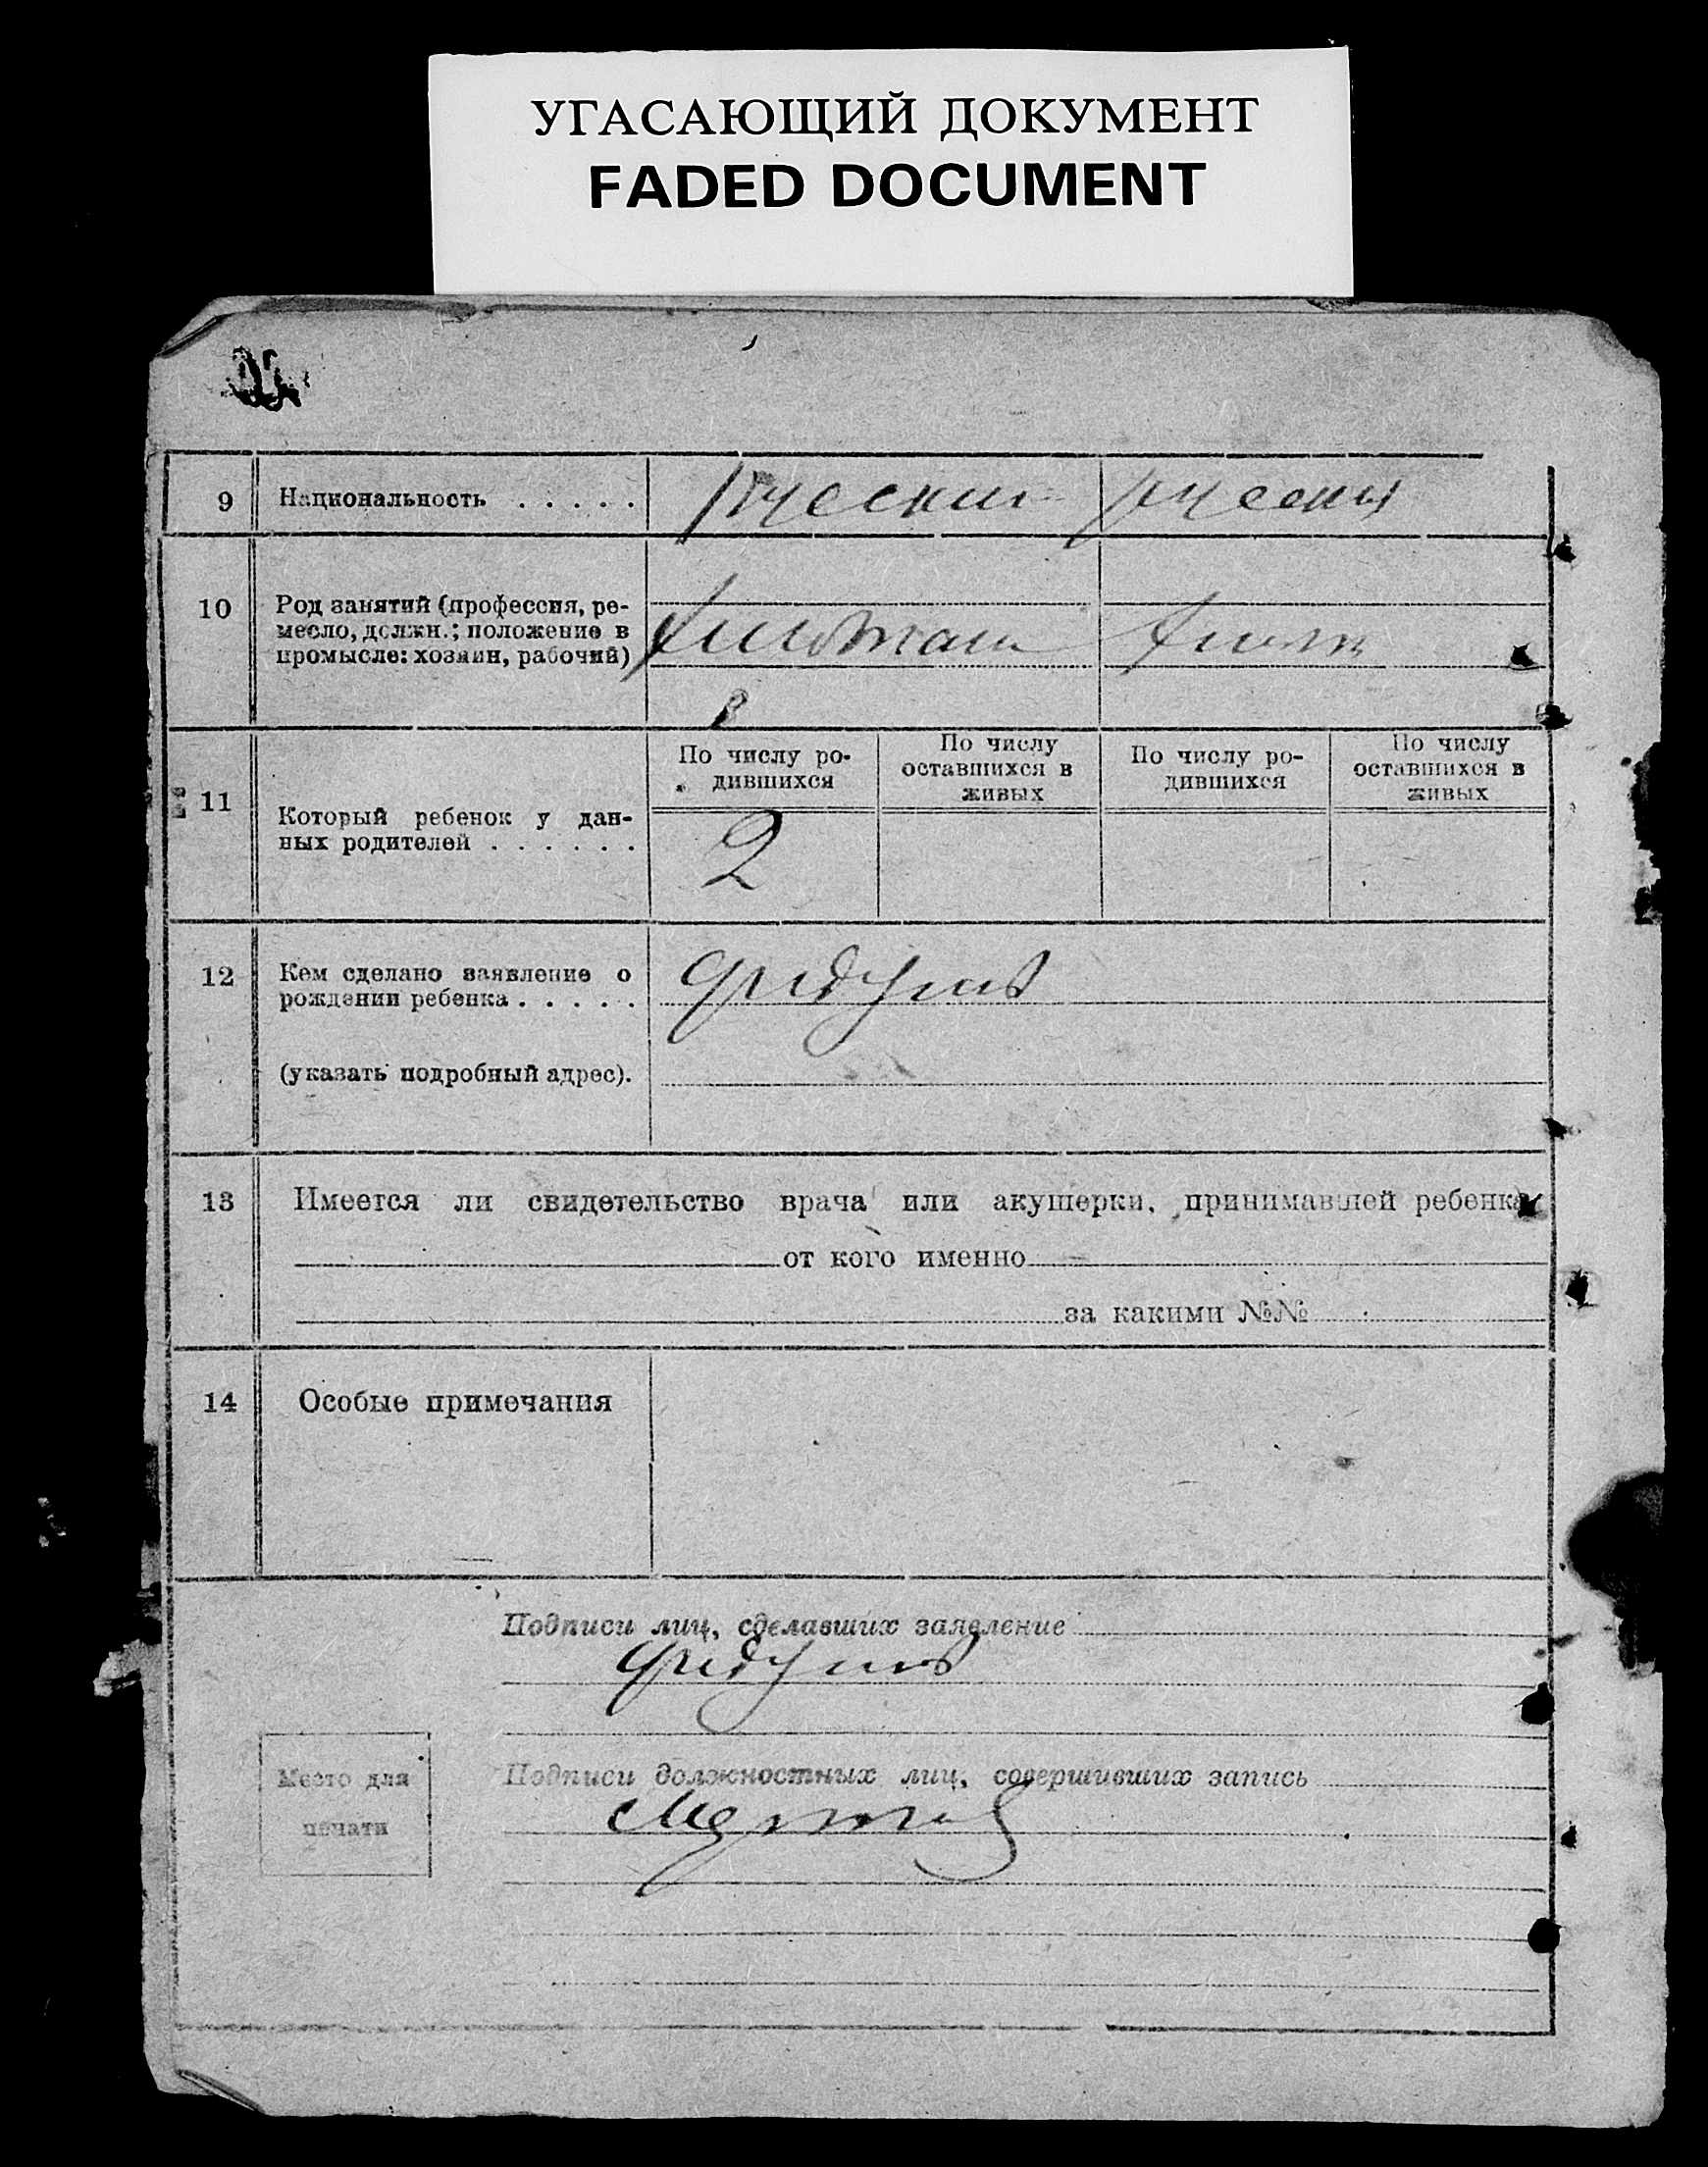 УГАСАЮЩИЙ ДОКУМЕНТ
FADED DOCUMENT
9 Национальность . . . . . русский русск
10 Род занятий (профессия, ре-
месло, должн.; положение в
промысле: хозяин, рабочий)
11 Который ребенок у дан-
ных родителей . . . . . .
По числу ро-
дившихся
По числу
оставшихся в
живых
По числу ро-
дившихся
По числу
оставшихся в
живых
2
12 Кем сделано заявление о
рождении ребенка . . . . .
(указать подробный адрес).
13 Имеется ли свидетельство врача или акушерки, принимавшей ребенка
от кого именно
за какими №№
14 Особые примечания
Подписи лиц, сделавших заявление
Место для
печати
Подписи должностных лиц, совершивших запись